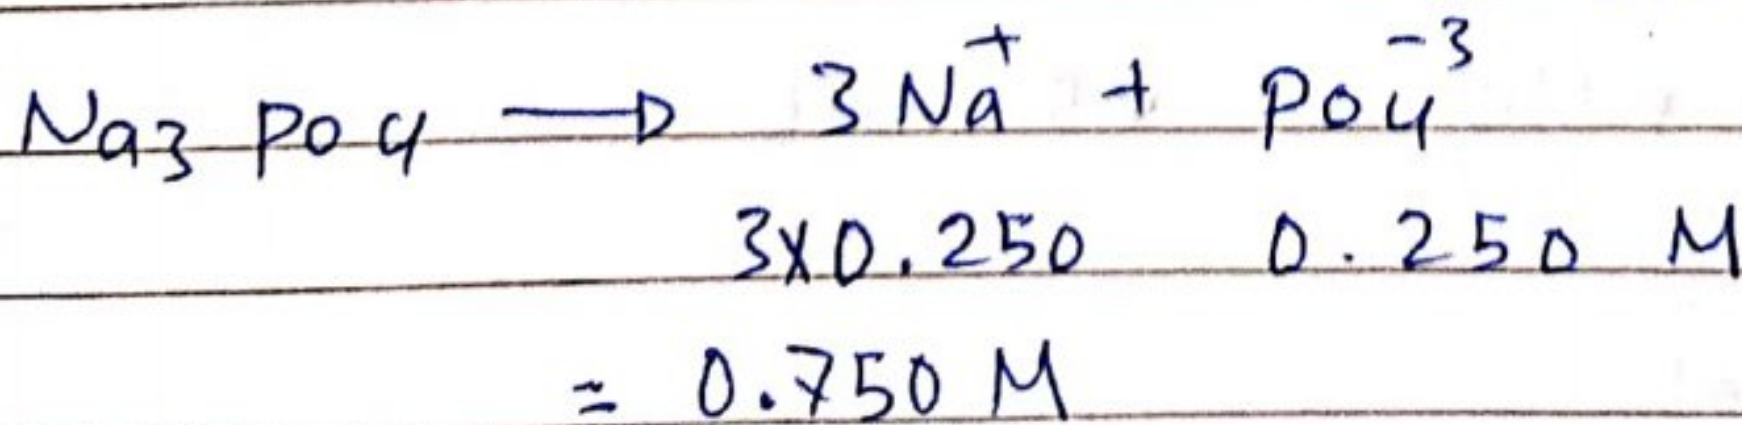 Na₃PO₄ → 3Na⁺ + PO₄⁻³
3×0.250 0.250 M
= 0.750 M